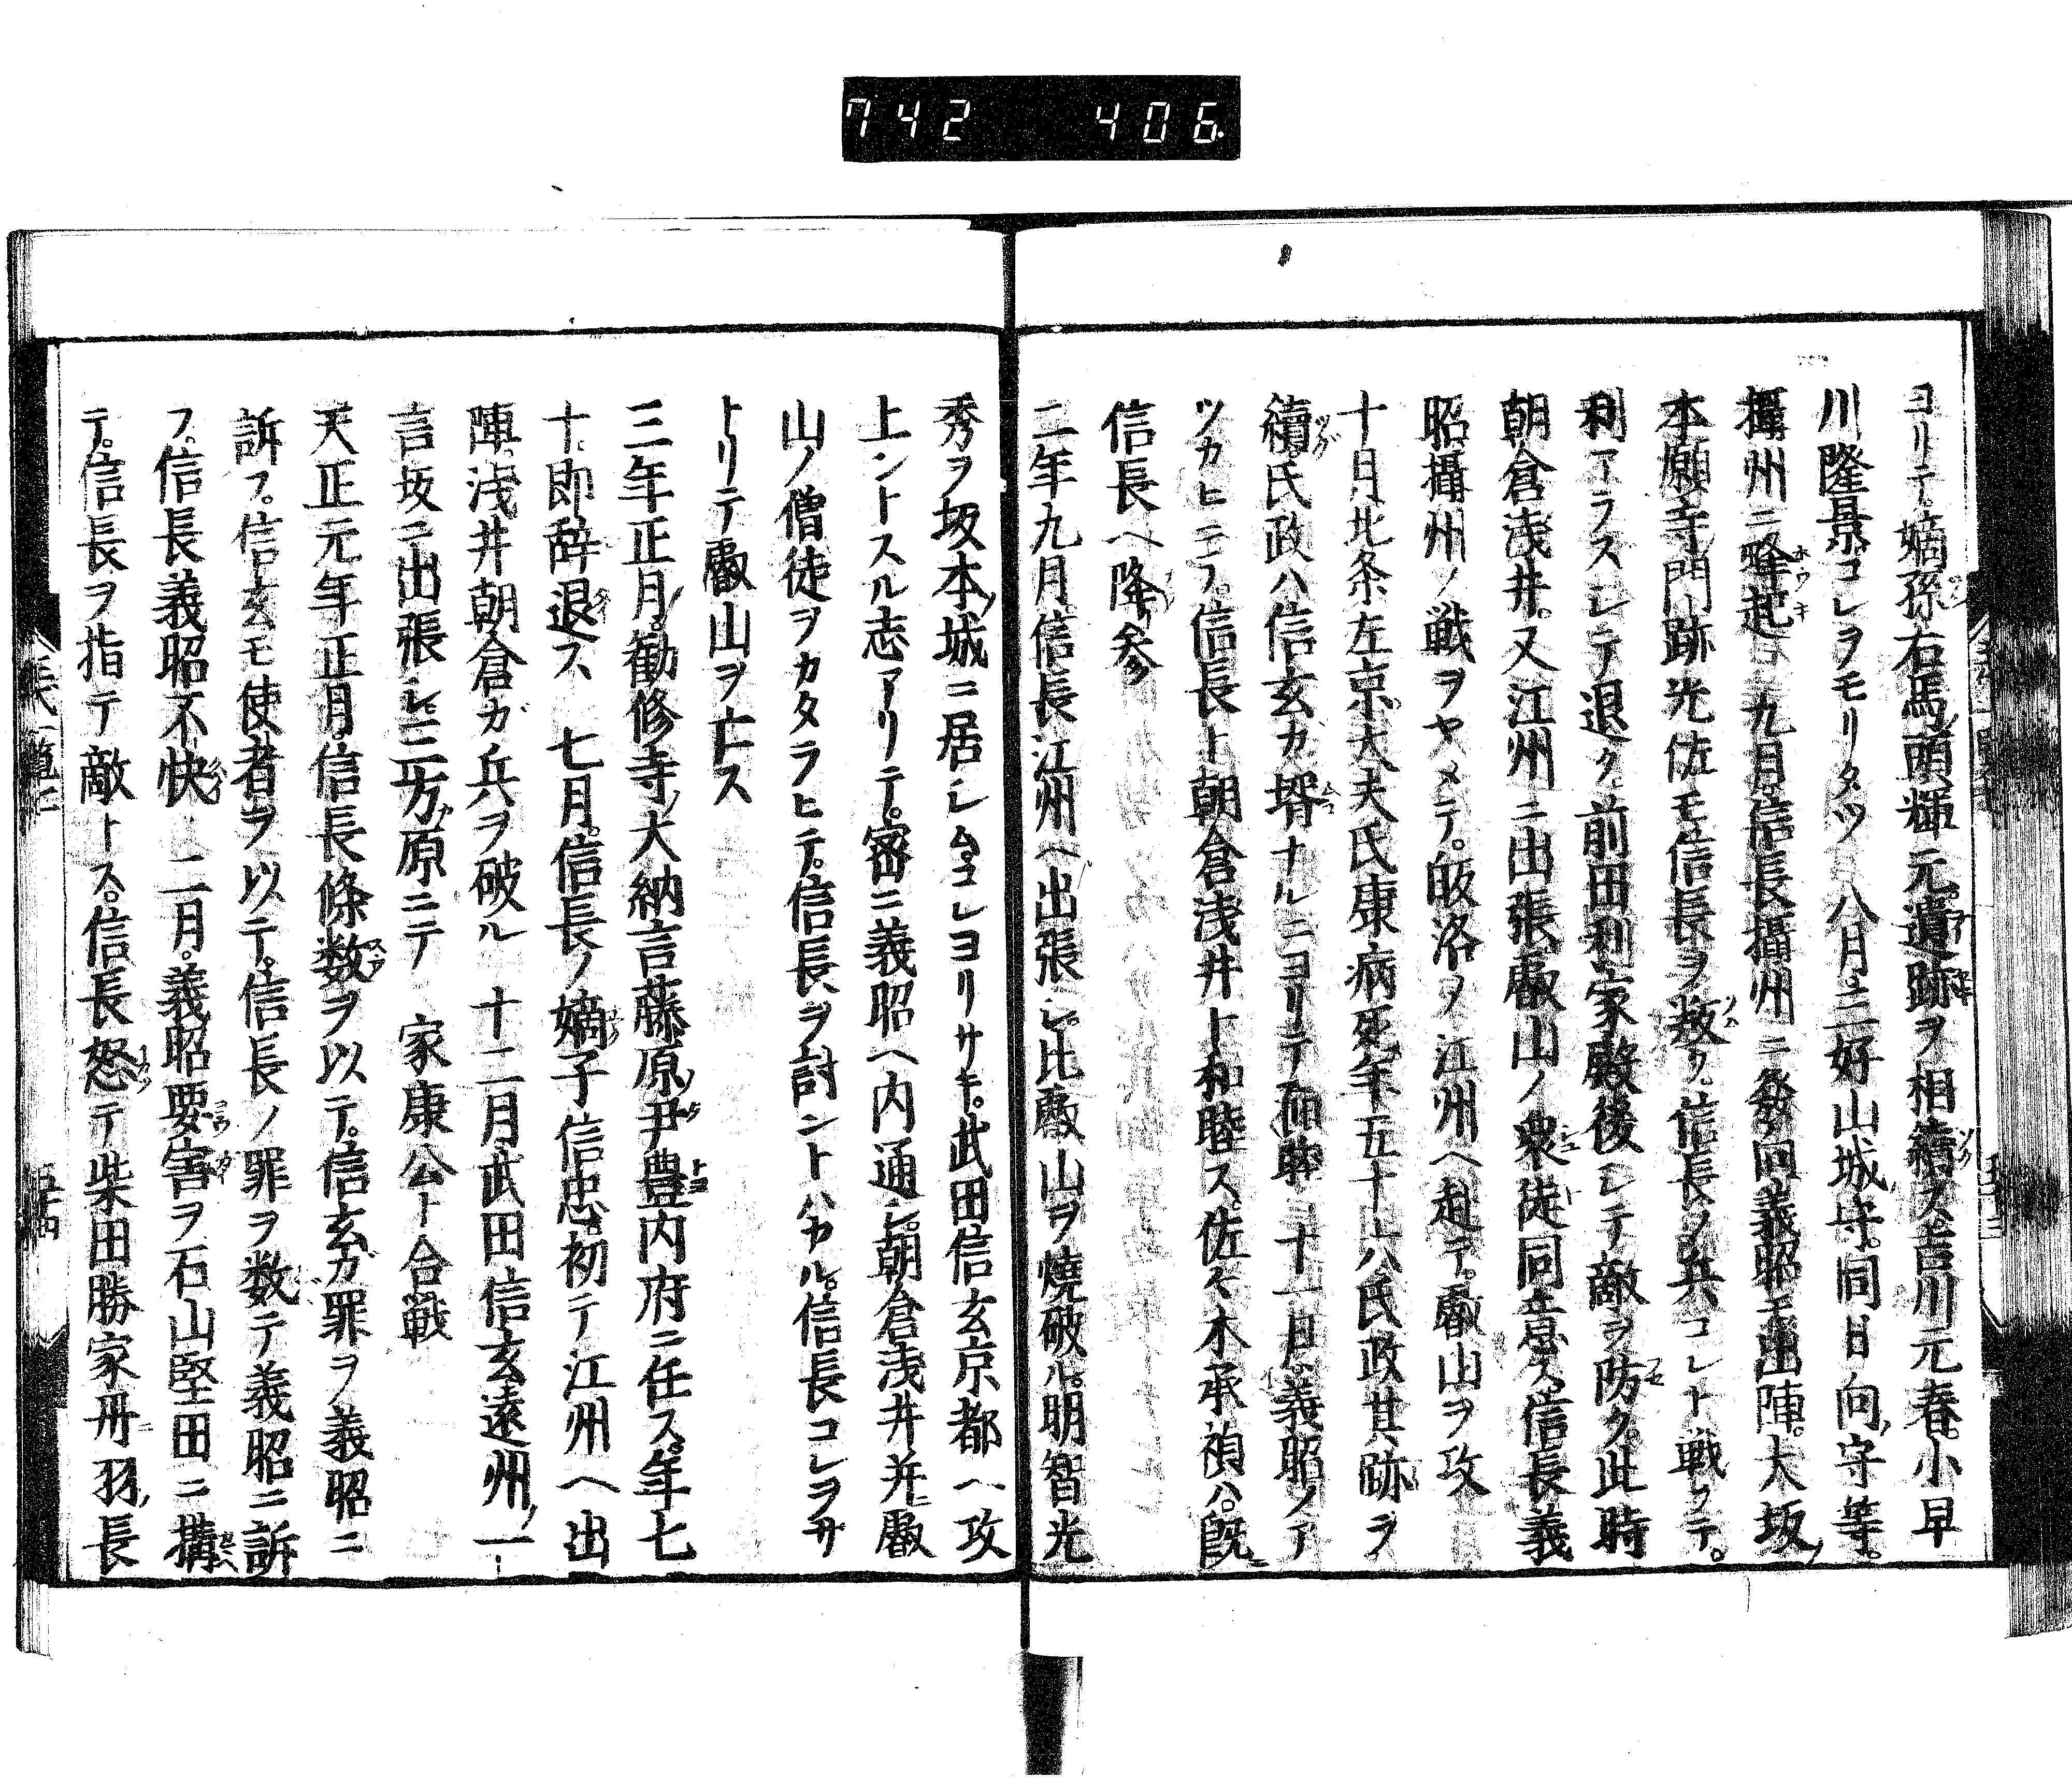 742 406.
ヨリテ。嫡孫右馬頭輝元。遺跡ヲ相續ス。吉川元春。小早
川隆景コレヲモリタツ 八月。三好山城守。同日向守等。
攝州ニ蜂起ス 九月。信長攝州ニ發向。義昭モ出陣。大坂
本願寺門跡光佐モ信長ヲ叛ク。信長ノ兵コレト戰テ。
利アラスシテ退ク。前田利家殿後シテ敵ヲ防ク。此時
朝倉浅井。又江州ニ出張。叡山ノ衆徒同意ス。信長義
昭攝州ノ戰ヲヤメテ。皈洛ソ江州ヘ赴テ。叡山ヲ攻
十月北条左京大夫氏康病死。年五十六。氏政其跡ヲ
續。氏政ハ信玄カ壻ナルニヨリテ和睦 十一月。義昭ノア
ツカヒニテ。信長ト朝倉浅井ト和睦ス。佐々木承禎ハ。既
信長ヘ降参
二年九月。信長江州ヘ出張シ。比叡山ヲ燒破ル。明智光
秀ヲ坂本城ニ居シム。コレヨリサキ。武田信玄京都ヘ攻
上ントスル志アリテ。密ニ義昭ヘ内通シ。朝倉浅井并叡
山ノ僧徒ヲカタラヒテ。信長ヲ討ントハカル。信長コレヲサ
トリテ叡山ヲ亡ス
三年正月。勸修寺大納言藤原尹豊内府ニ任ス。年七
十。即辞退ス 七月。信長ノ嫡子信忠。初テ江州ヘ出
陣。浅井朝倉ガ兵ヲ破ル 十二月武田信玄遠州一
言坂ニ出張シ。三方原ニテ 家康公ト合戰
天正元年正月。信長條数ヲ以テ。信玄ガ罪ヲ義昭ニ
訴フ。信玄モ使者ヲ以テ。信長ノ罪ヲ数テ義昭ニ訴
フ。信長義昭不快 二月。義昭要害ヲ石山堅田ニ構
テ。信長ヲ指テ敵トス。信長怒テ柴田勝家丹羽長